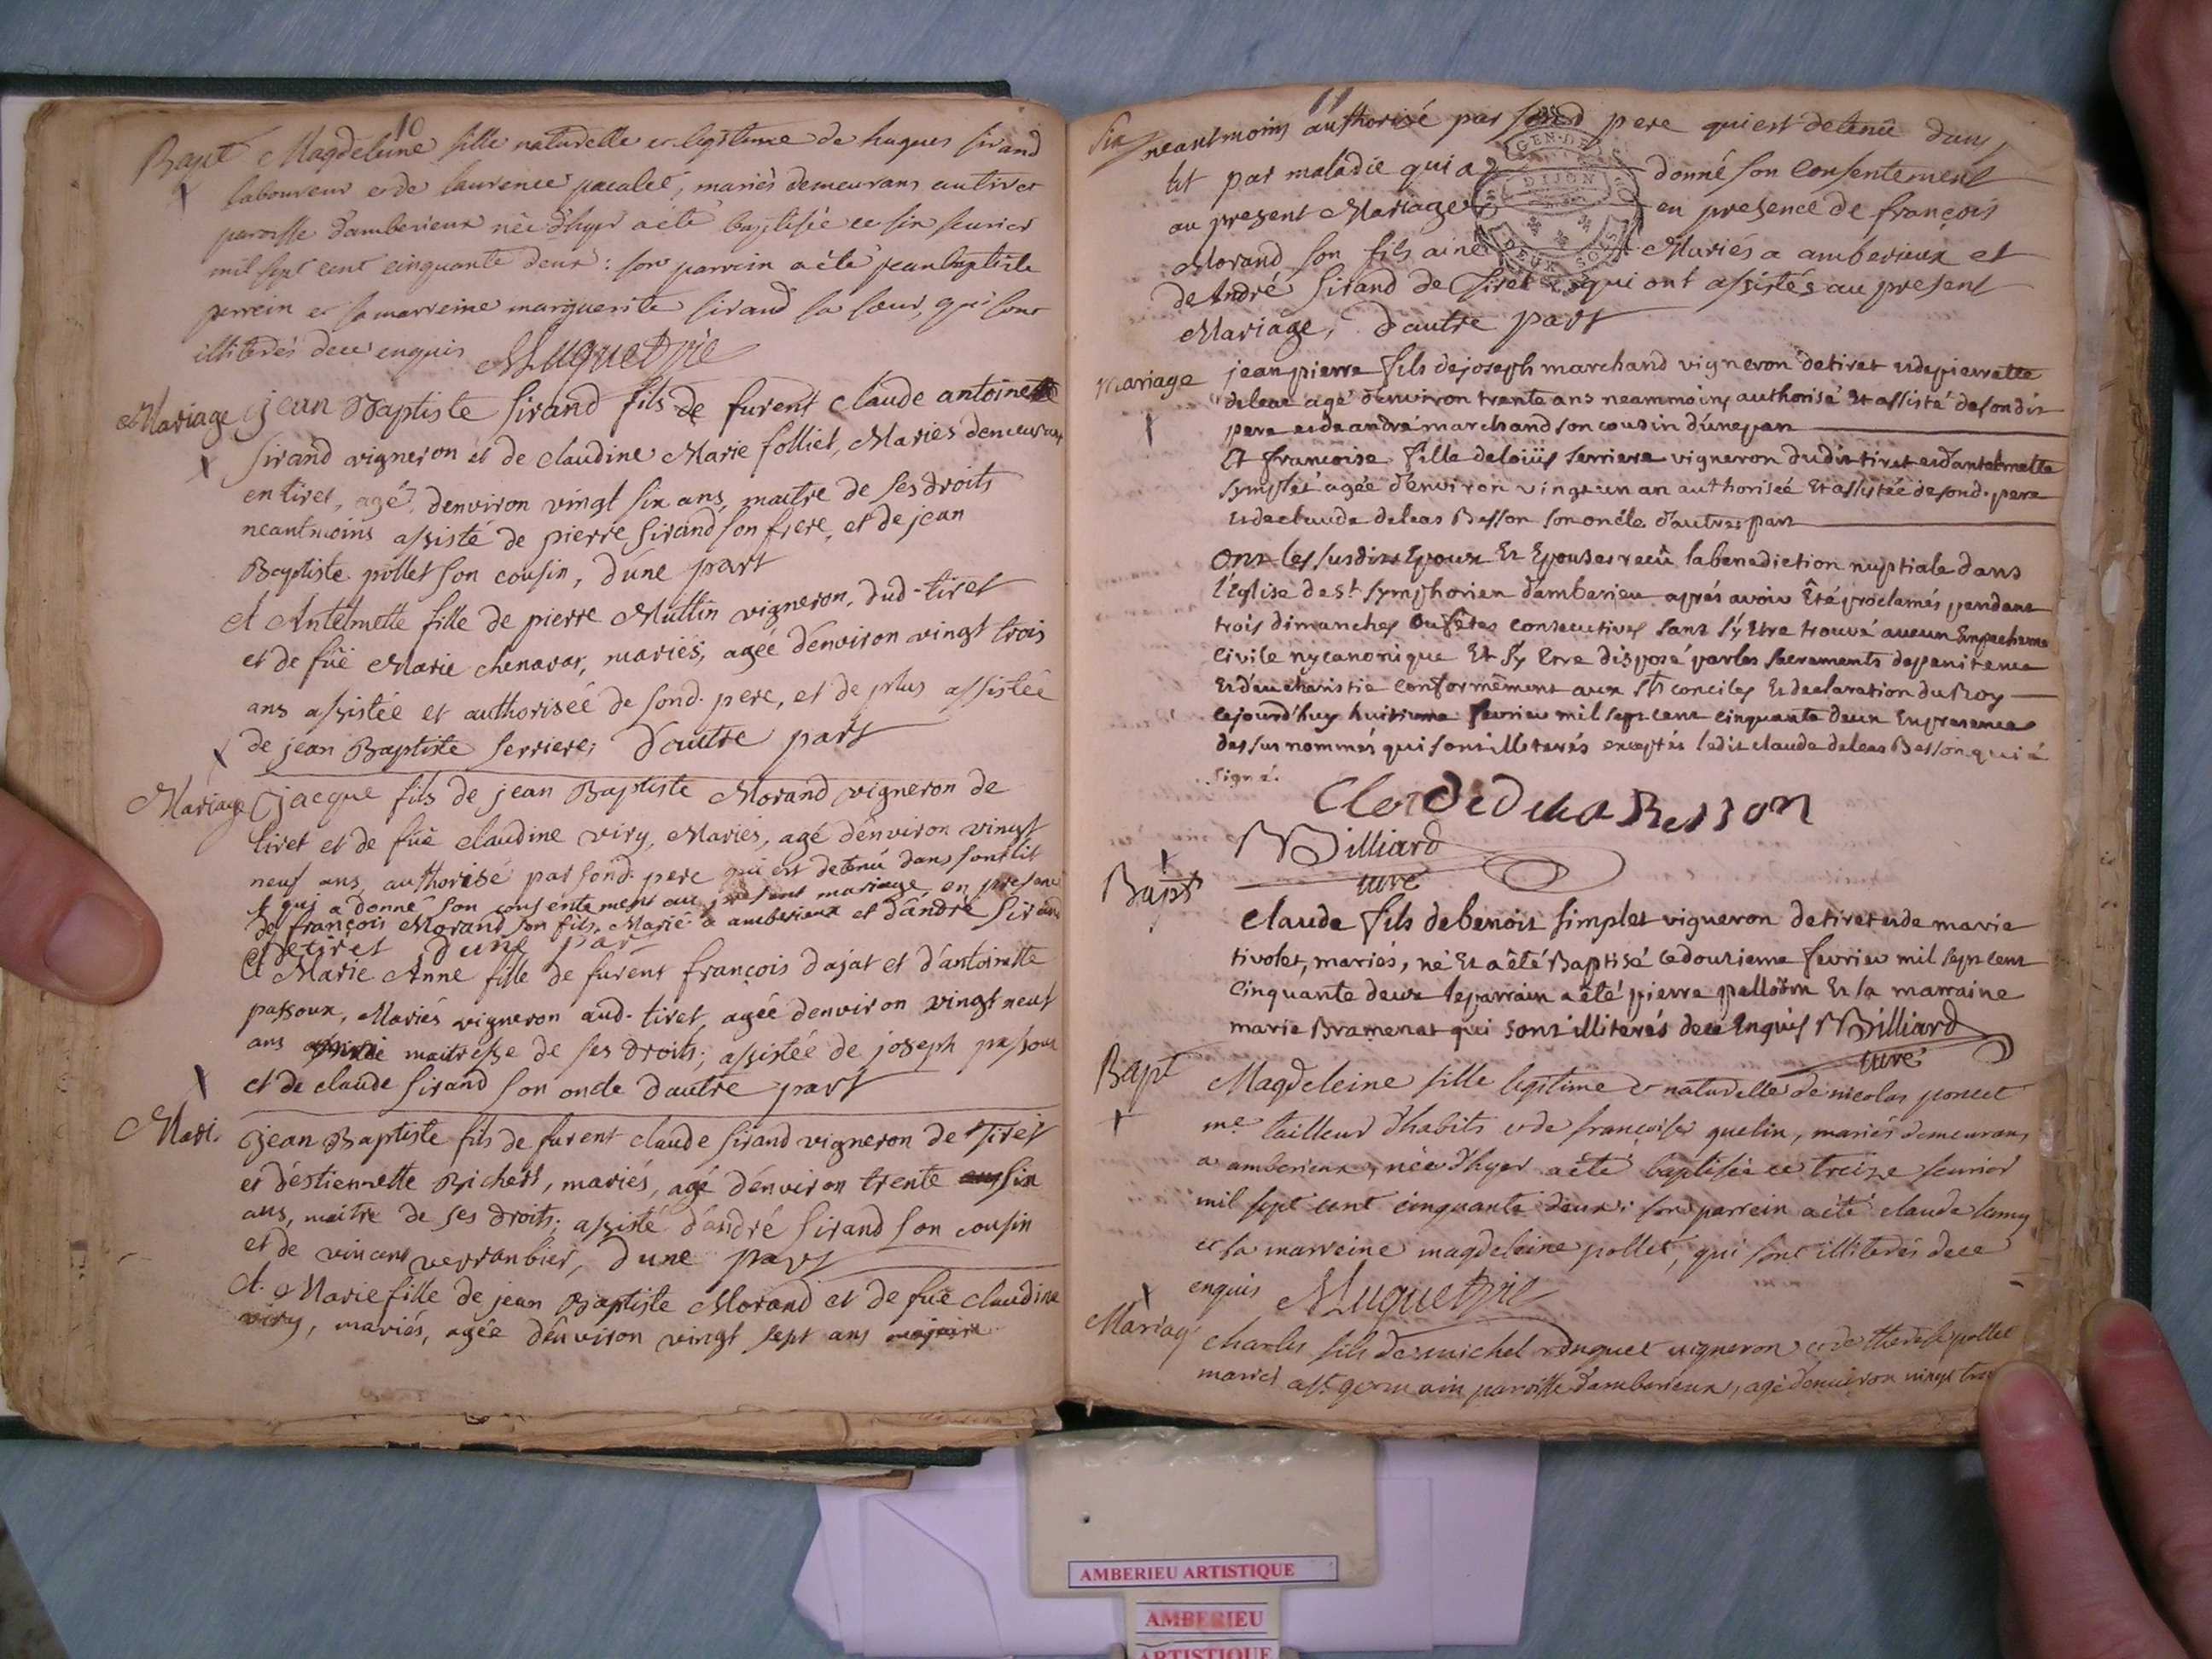 10
Bapt Magdeleine fille naturelle et legitime de hugues sirand
laboureur et de laurence pacalet, mariés demeurans au tiret
paroisse d'amberieux née d'hyer a été baptisée ce six feurier
mil sept cent cinquante deux : son parrein a été jean baptiste
perrein et sa marreine marguerite sirand sa sœur, qui sont
illiterés de ce enquis Muguet
Mariage jean Baptiste Sirand fils de furent claude antoinette
sirand vigneron et de claudine Marie folliet, Mariés demeurant
en tiret, agé d'environ vingt six ans, maitre de ses droits
neantmoins assisté de pierre Sirand son frere, et de jean
Baptiste pollet son cousin, d'une part
et Antelmette fille de pierre Muttin vigneron dud. tiret
et de füe Marie chenavar, mariés, agée d'environ vingt trois
ans assistée et authorisée de sond. pere, et de plus assistée
de jean Baptiste serriere, d'autre part
Mariage jacque fils de jean Baptiste Morand vigneron de
tiret et de füe claudine viry, Mariés, agé d'environ vingt
neuf ans, authorisé par sond. pere qui est detenu dans son lit
et qui a donné son consentement au present mariage, en presence
de françois Morand son fils, Marié a amberieux et d'andré Sirand
de tiret d'une part
et Marie Anne fille de furent françois dajat et d'antoinette
passoux, Mariés vigneron aud. tiret, agée d'environ vingt neuf
ans maitresse de ses droits; assistée de joseph passoux
et de claude Sirand son oncle d'autre part
Mari. jean Baptiste fils de furent claude sirand vigneron de Tiret
et d'éstiennette Richert, mariés, agé d'environ trente six
ans, maitre de ses droits; assisté d'andré Sirand son cousin
et de vincent verranbier, d'une part
et Marie fille de jean Baptiste Morand et de füe claudine
viry, mariés, agée d'environ vingt sept ans
11
neantmoins authorisé par sond pere qui est detenû dans
lit par maladie qui a donné son consentement
au present Mariage en presence de françois
Morand son fils ainé Mariés a amberieux et
de André Sirand de Tiret qui ont assistés au present
Mariage, d'autre part
Mariage jean pierre fils de joseph marchand vigneron de tiret et de pierrette
deleas agé d'environ trente ans neammoins authorisé et assisté de son dit
pere et de andré marchand son cousin d'une part
Et francoise fille de loüis serriere vigneron du dit tiret et d'antelmette
symplet agée d'environ vingt un an authorisée et assistée de sond. pere
et de claude deleas Besson son oncle d'autres part
ont les susdits Epoux Et Epouses recû la benediction nuptiale dans
l'Eglise de st symphorien d'amberieu aprés avoir Eté proclamés pendant
trois dimanches ou fêtes consecutives sans s'y Etre trouvé aucun Empecheme
civile ny canonique Et s'y Etre disposé par les sacrements de penitence
Et d'eucharistie conformément aux sts conciles Et declaration du Roy
cejourd'huy huitieme fevrier mil sept cent cinquante deux En presence
des sus nommés qui sont illiterés exceptés ledit claude deleas Besson qui a
signé.
Clode delea Besson
Billiard
curé
Bapt
claude fils de benoit simplet vigneron de tiret et de marie
tivolet, mariés, né Et a été Baptisé ce douzieme fevrier mil sept cent
cinquante deux le parrain a été pierre Et la marraine
marie Bramenat qui sont illiterés de ce Enquis Billiard
curé
Bapt Magdeleine fille legitime et naturelle de nicolas poncet
me tailleur d'habits et de françoise quelin, mariés demeurans
a amberieux, née d'hyer a été baptisée ce treize feurier
mil sept cent cinquante deux: son parrein a été claude lamy
et sa marreine magdeleine pollet, qui sont illiterés de ce
enquis Muguet
Mariag charles fils de michel vigneron et de therese pollet
mariés a st germain paroisse d'amberieux, agé d'environ vingt
GEN. DE
DIJON
DEUX SOLS
AMBERIEU ARTISTIQUE
AMBERIEU
ARTISTIQUE